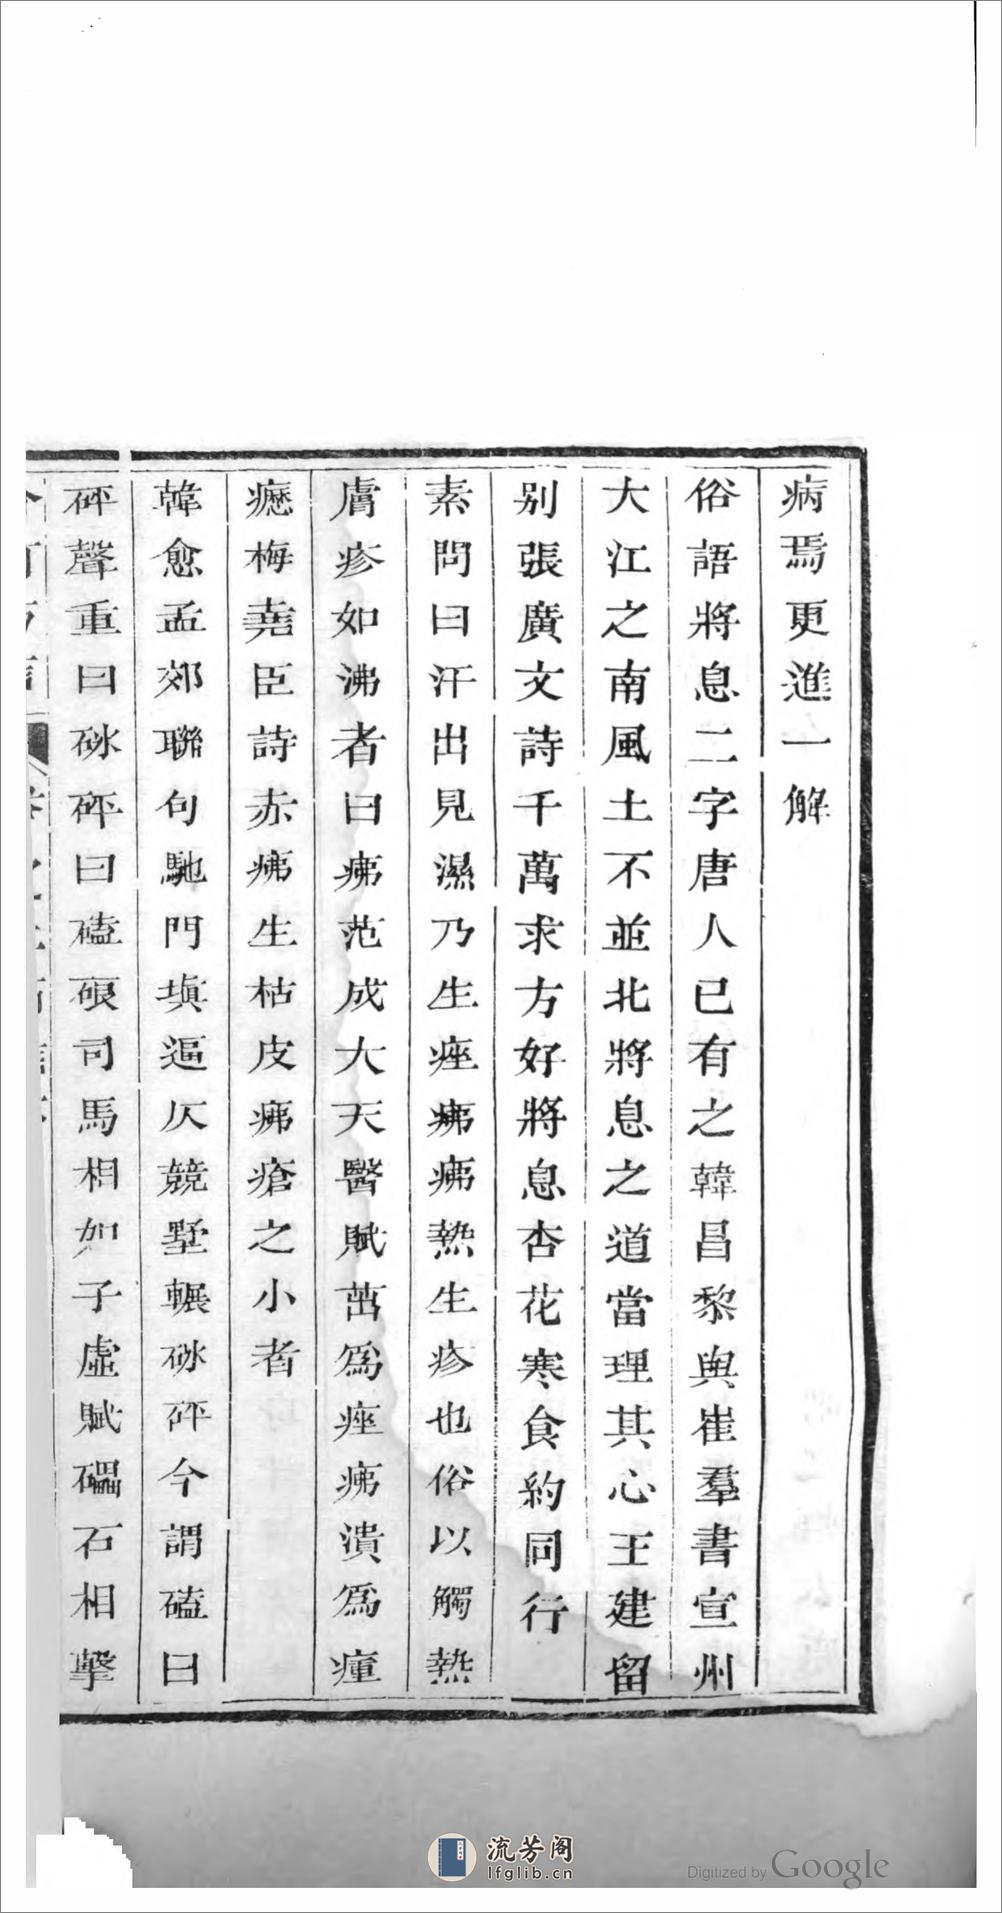 病焉更進一解
俗語將息二字唐人已有之韓昌黎與崔羣書宣州
大江之南風土不並北將息之道當理其心王建留
别張廣文詩千萬求方好將息杏花寒食約同行
素問曰汗出見濕乃生痤疿疿熱生疹也俗以觸熱
膚疹如沸者曰疿范成大天醫賦茁爲痤疿潰爲瘇
癧梅堯臣詩赤疿生枯皮疿瘡之小者
韓愈孟郊聯句馳門塡逼仄競墅輾砯砰今謂磕曰
砰聲重曰砯砰曰磕硠司馬相如子虛賦礧石相擊
流芳阁
lfglib.cn
Digitized by Google